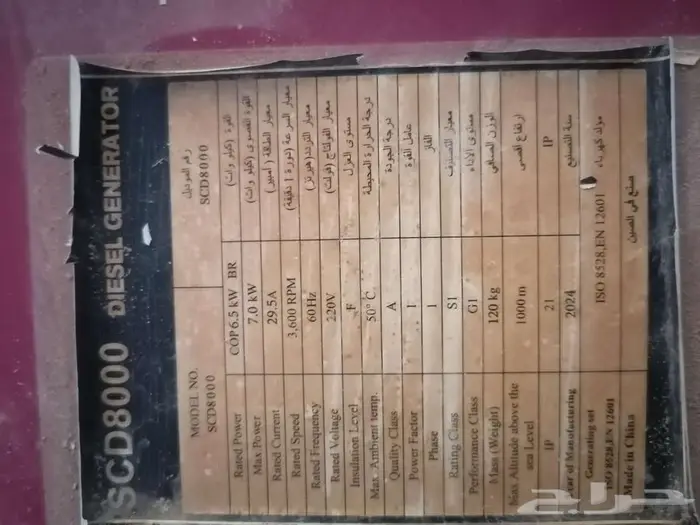 SCD8000 DIESEL GENERATOR
MODEL NO. رقم الموديل
SCD8000 SCD8000
Rated Power COP 6.5 kW BR القوة (كيلو وات)
Max Power 7.0 kW القوة القصوى (كيلو وات)
Rated Current 29.5A معيار الطاقة (امبير)
Rated Speed 3,600 RPM معيار السرعة (دورة / دقيقة)
Rated Frequency 60Hz معيار التردد (هيرتز)
Rated Voltage 220V معيار الفولتاج (فولت)
Insulation Level F مستوى العزل
Max. Ambient temp. 50° C. درجة الحرارة المحيطة
Quality Class A درجة الجودة
Power Factor 1 عامل القوة
Phase 1 الفاز
Rating Class S1 معيار التصنيف
Performance Class G1 مستوى الأداء
Mass (Weight) 120 kg الوزن الصافي
Max Altitude above the 1000m ارتفاع أقصى
sea Level
IP 21 IP
Year of Manufacturing 2024 سنة التصنيع
Generating set مولد كهرباء
ISO 8528,EN 12601 ISO 8528,EN 12601
Made in China صنع في الصين
حراج